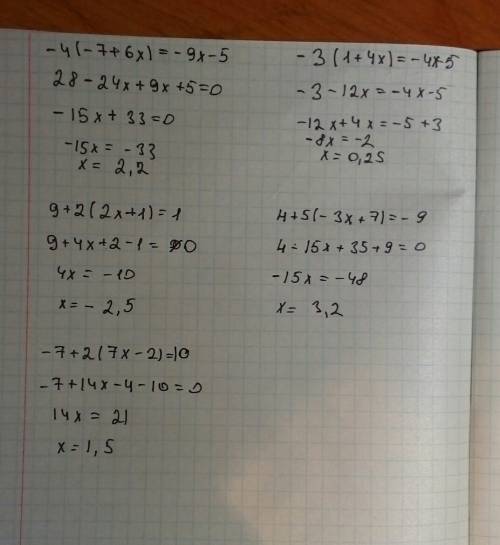 -4(-7+6x)=-9x-5
28-24x+9x+5=0
-15x+33=0
-15x=-33
x=2,2
-3(1+4x)=-4x-5
-3-12x=-4x-5
-12x+4x=-5+3
-8x=-2
x=0,25
9+2(2x+1)=1
9+4x+2-1=0
4x=-10
x=-2,5
4+5(-3x+7)=-9
4=15x+35+9=0
-15x=-48
x=3,2
-7+2(7x-2)=10
-7+14x-4-10=0
14x=21
x=1,5